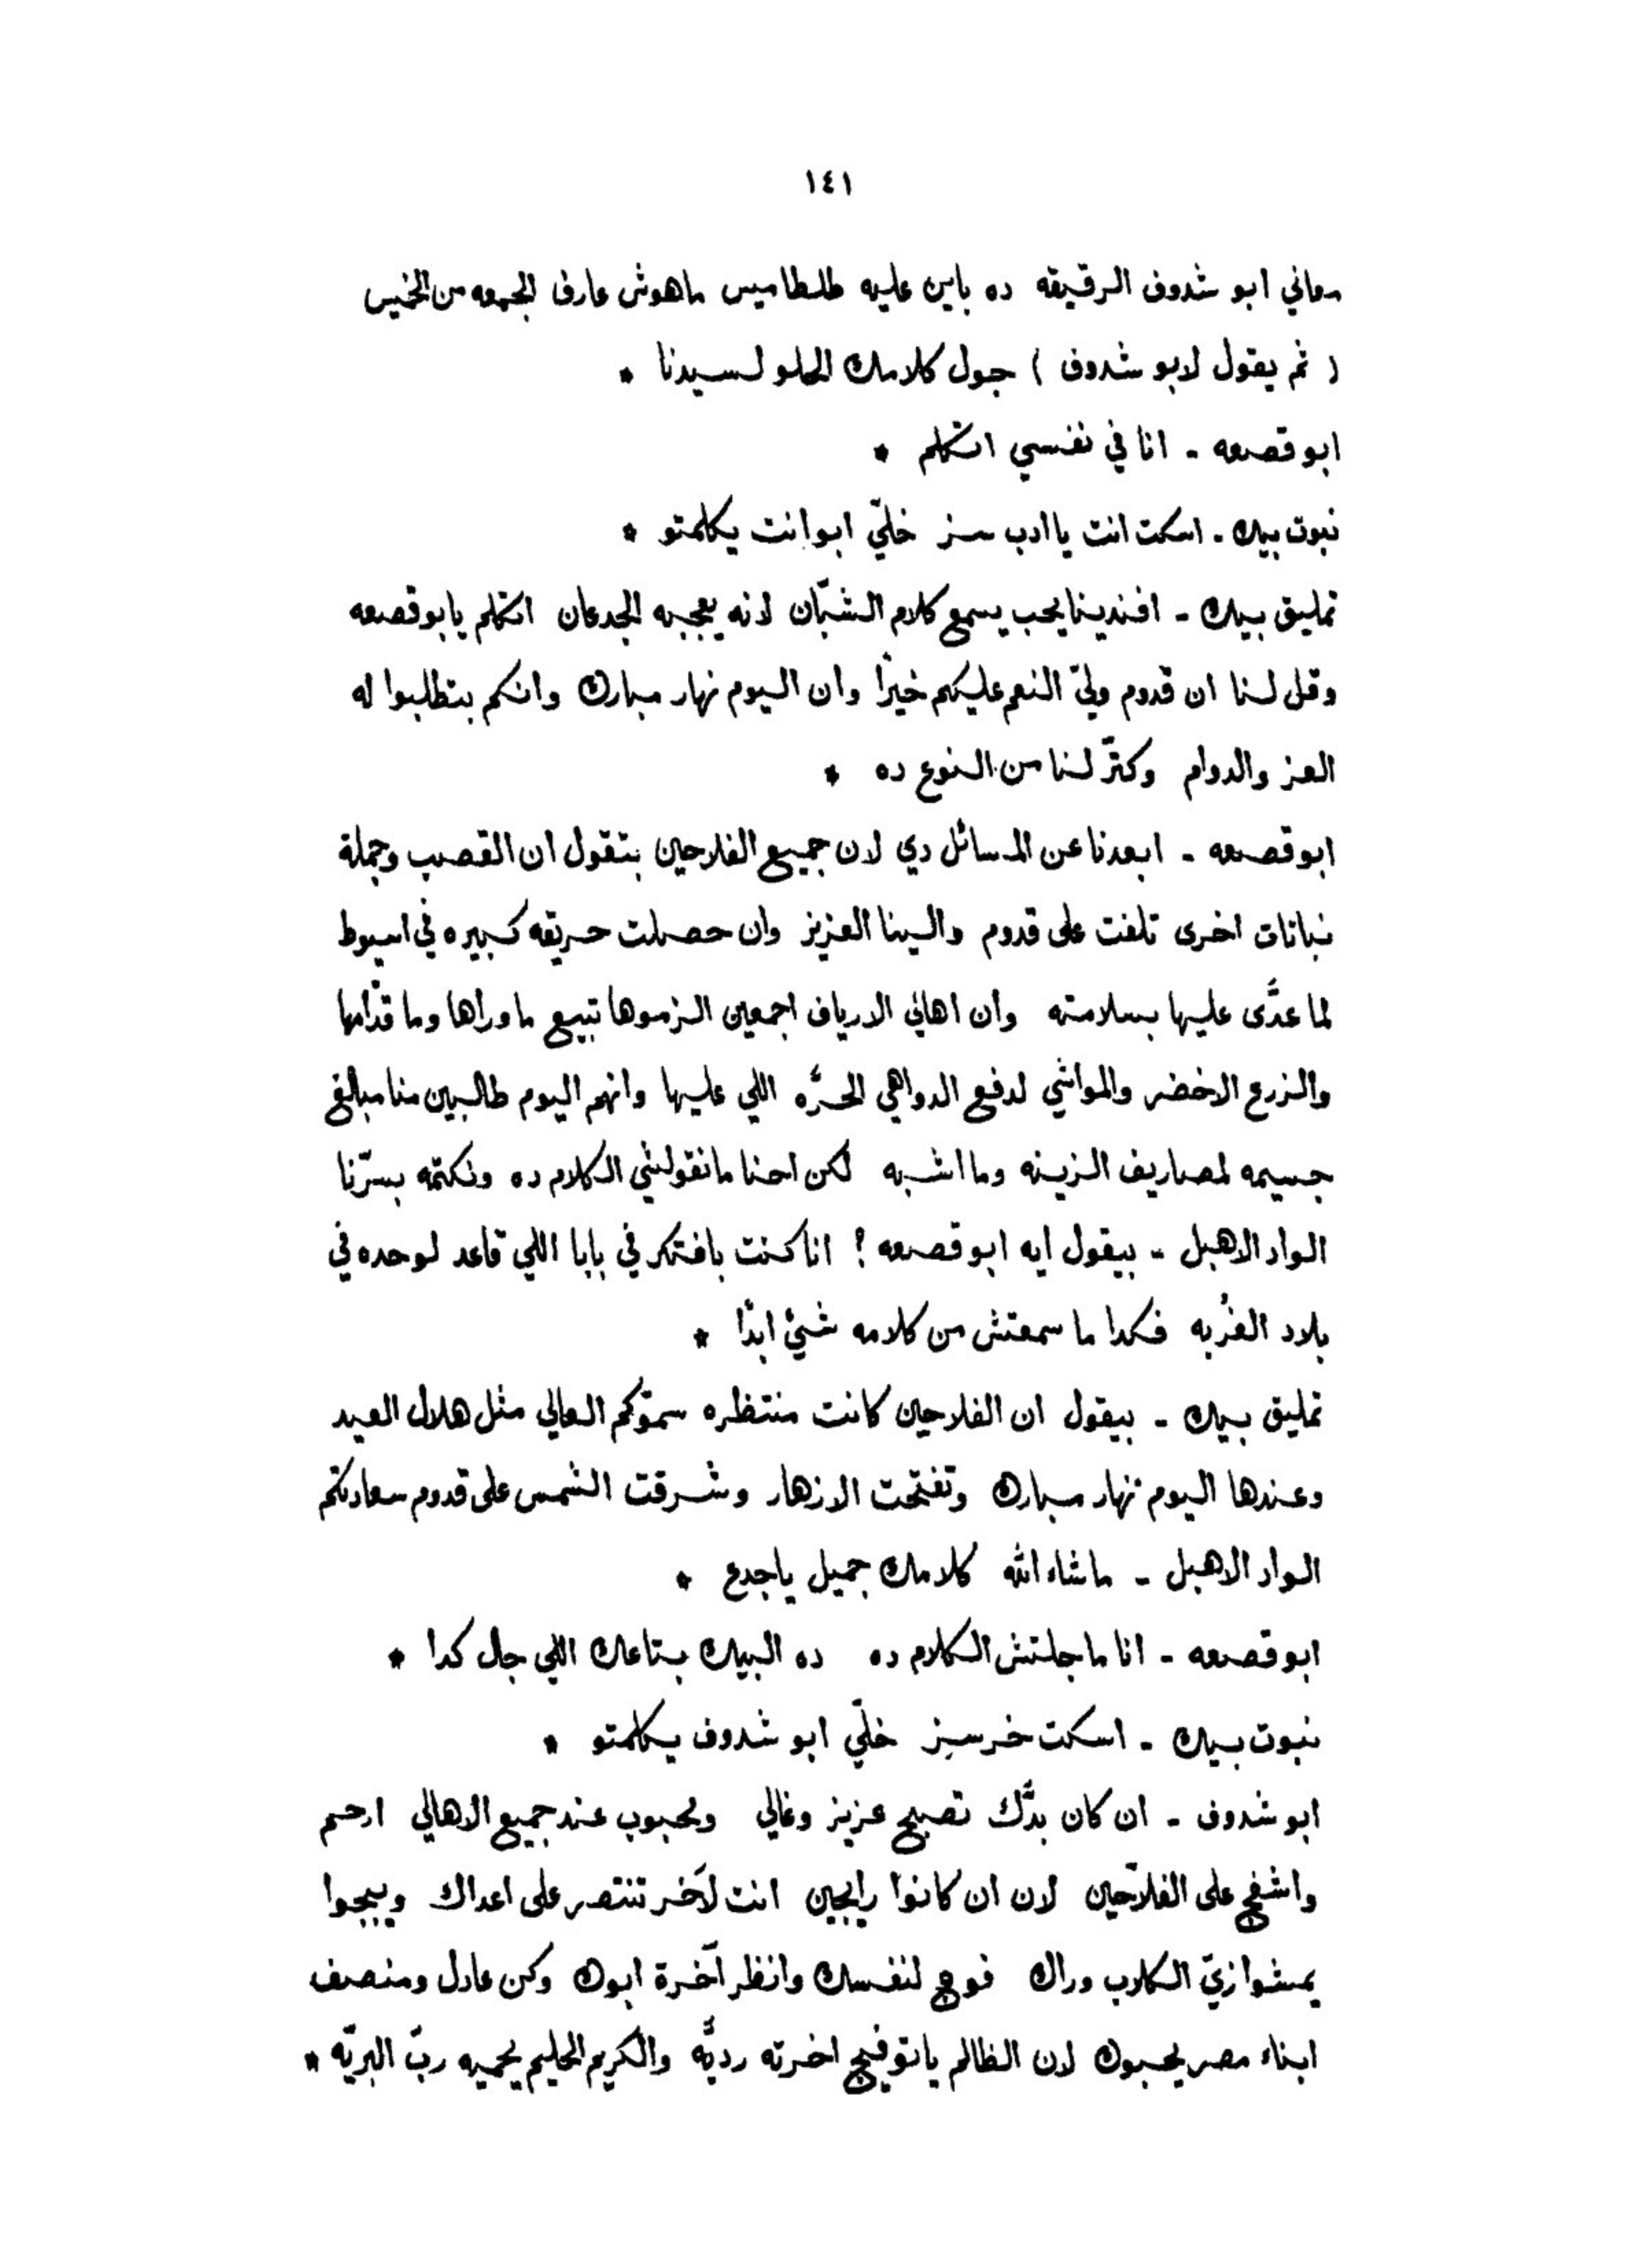 ١٤١
معاني ابو شدوف الرقيقه ده باين عليه طلطاميس ماهوش عارف الجمعه من الخميس
( ثم يقول لابو شدوف ) جول كلامك الحلو لسيدنا *
ابو قصعه - انا في نفسي اتكلم *
نبوت بيك - اسكت انت يا ادب سز خلّي ابوانت يكلمتو *
تمليق بيك - افندينا يحب يسمع كلام الشبّان لانه يعجبه الجدعان اتكلم يابو قصعه
وقل لنا ان قدوم وليّ النعم عليكم خيرًا وان اليوم نهار مبارك وانكم بتطلبوا له
العز والدوام وكتّر لنا من النوع ده *
ابو قصعه - ابعدنا عن المسائل دي لان جميع الفلاحين بتقول ان القصب وجملة
نباتات اخرى تلفت على قدوم والينا العزيز وان حصلت حريقه كبيره في اسيوط
لما عدَّى عليها بسلامته وان اهالي الارياف اجمعين الزموها تبيع ماوراها وما قدّامها
والزرع الاخضر والمواشي لدفع الدواهي الحرَّه اللي عليها وانهم اليوم طالبين منا مبالغ
جسيمه لمصاريف الزينه وما اشبه لكن احنا مانقولشي الكلام ده ونكتمه بسرّنا
الواد الاهبل - بيقول ايه ابو قصعه ؟ انا كنت بافتكر في بابا اللي قاعد لوحده في
بلاد الغُربه فكدا ما سمعتش من كلامه شيئ ابدًا *
تمليق بيك - بيقول ان الفلاحين كانت منتظره سموّكم العالي مثل هلال العيد
وعندها اليوم نهار مبارك وتفتّحت الازهار وشرقت الشمس على قدوم سعادتكم
الواد الاهبل - ماشاء الله كلامك جميل ياجدع *
ابو قصعه - انا ما جلتش الكلام ده ده البيك بتاعك اللي جال كدا *
نبوت بيك - اسكت خرسيز خلّي ابو شدوف يكلمتو *
ابو شدوف - ان كان بدَّك تصبح عزيز وغالي ومحبوب عند جميع الاهالي ارحم
واشفج على الفلاّحين لان ان كانوا رايجين انت لآخر تنتصر على اعداك وييجوا
يمشوا زيّ الكلاب وراك فوج لنفسك وانظر آخرة ابوك وكن عادل ومنصف
ابناء مصر يحبوك لان الظالم ياتوفيج اخرته رديَّه والكريم الحليم يحميه ربّ البريّه *